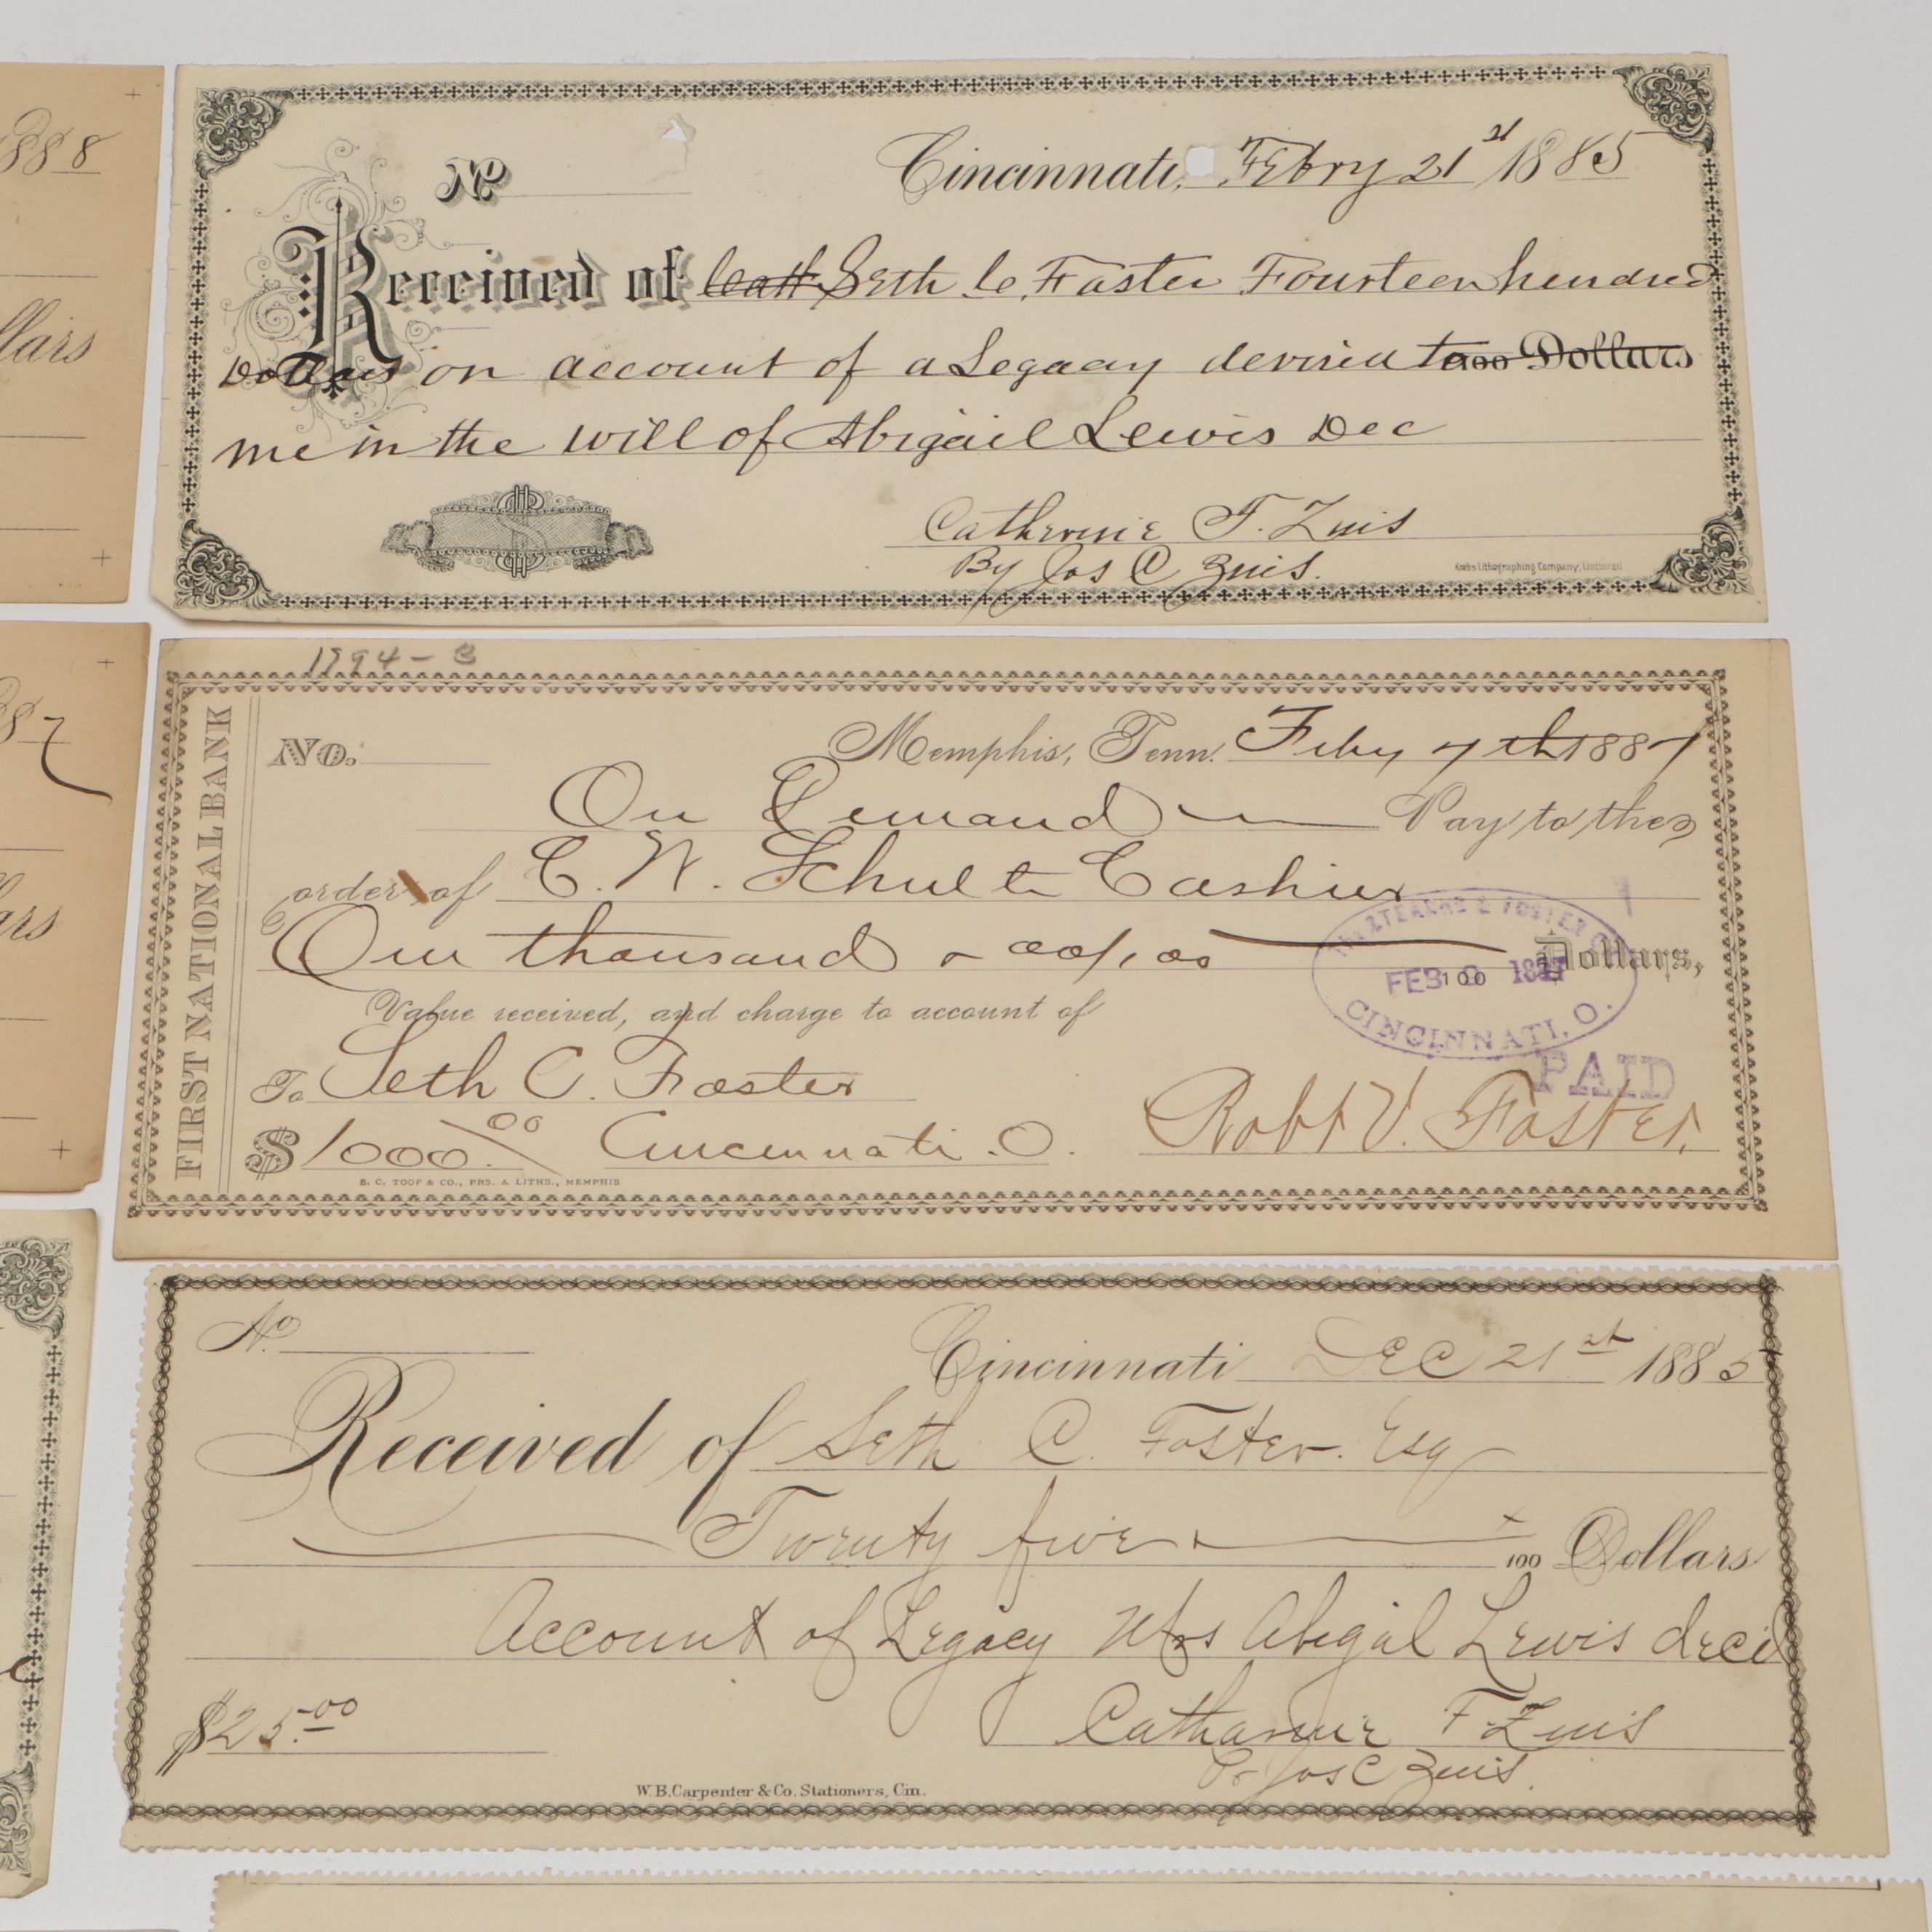 888
llars
No
Cincinnati, Febry 21st 1885
Received of Seth C. Foster Fourteen hundred
Dollars on account of a Legacy devised to 100 Dollars
me in the will of Abigail Lewis Dec
Catherine F. Zuis
By Jos C Zuis.
Krebs Lithographing Company, Cincinnati
87
ars
1994-3
FIRST NATIONAL BANK
No.
Memphis, Tenn. Feby 7th 1887
On Demand Pay to the
order of C. W. Schultz Cashier
One thousand & 00/100 Dollars,
100
Value received, and charge to account of
To Seth C. Foster
$1000.00 Cincinnati. O.
Robt V. Foster.
S. C. TOOF & CO., PRS. & LITHS., MEMPHIS
& FOSTER
FEB 1887
CINCINNATI, O.
PAID
No.
Cincinnati Dec 21st 1885
Received of Seth C. Foster. Esq
Twenty five 100 Dollars
Account of Legacy Mrs Abigal Lewis decd
$25.00
Catharine F Zuis
Pr Jos C Zuis.
W.B. Carpenter & Co. Stationers, Cin.